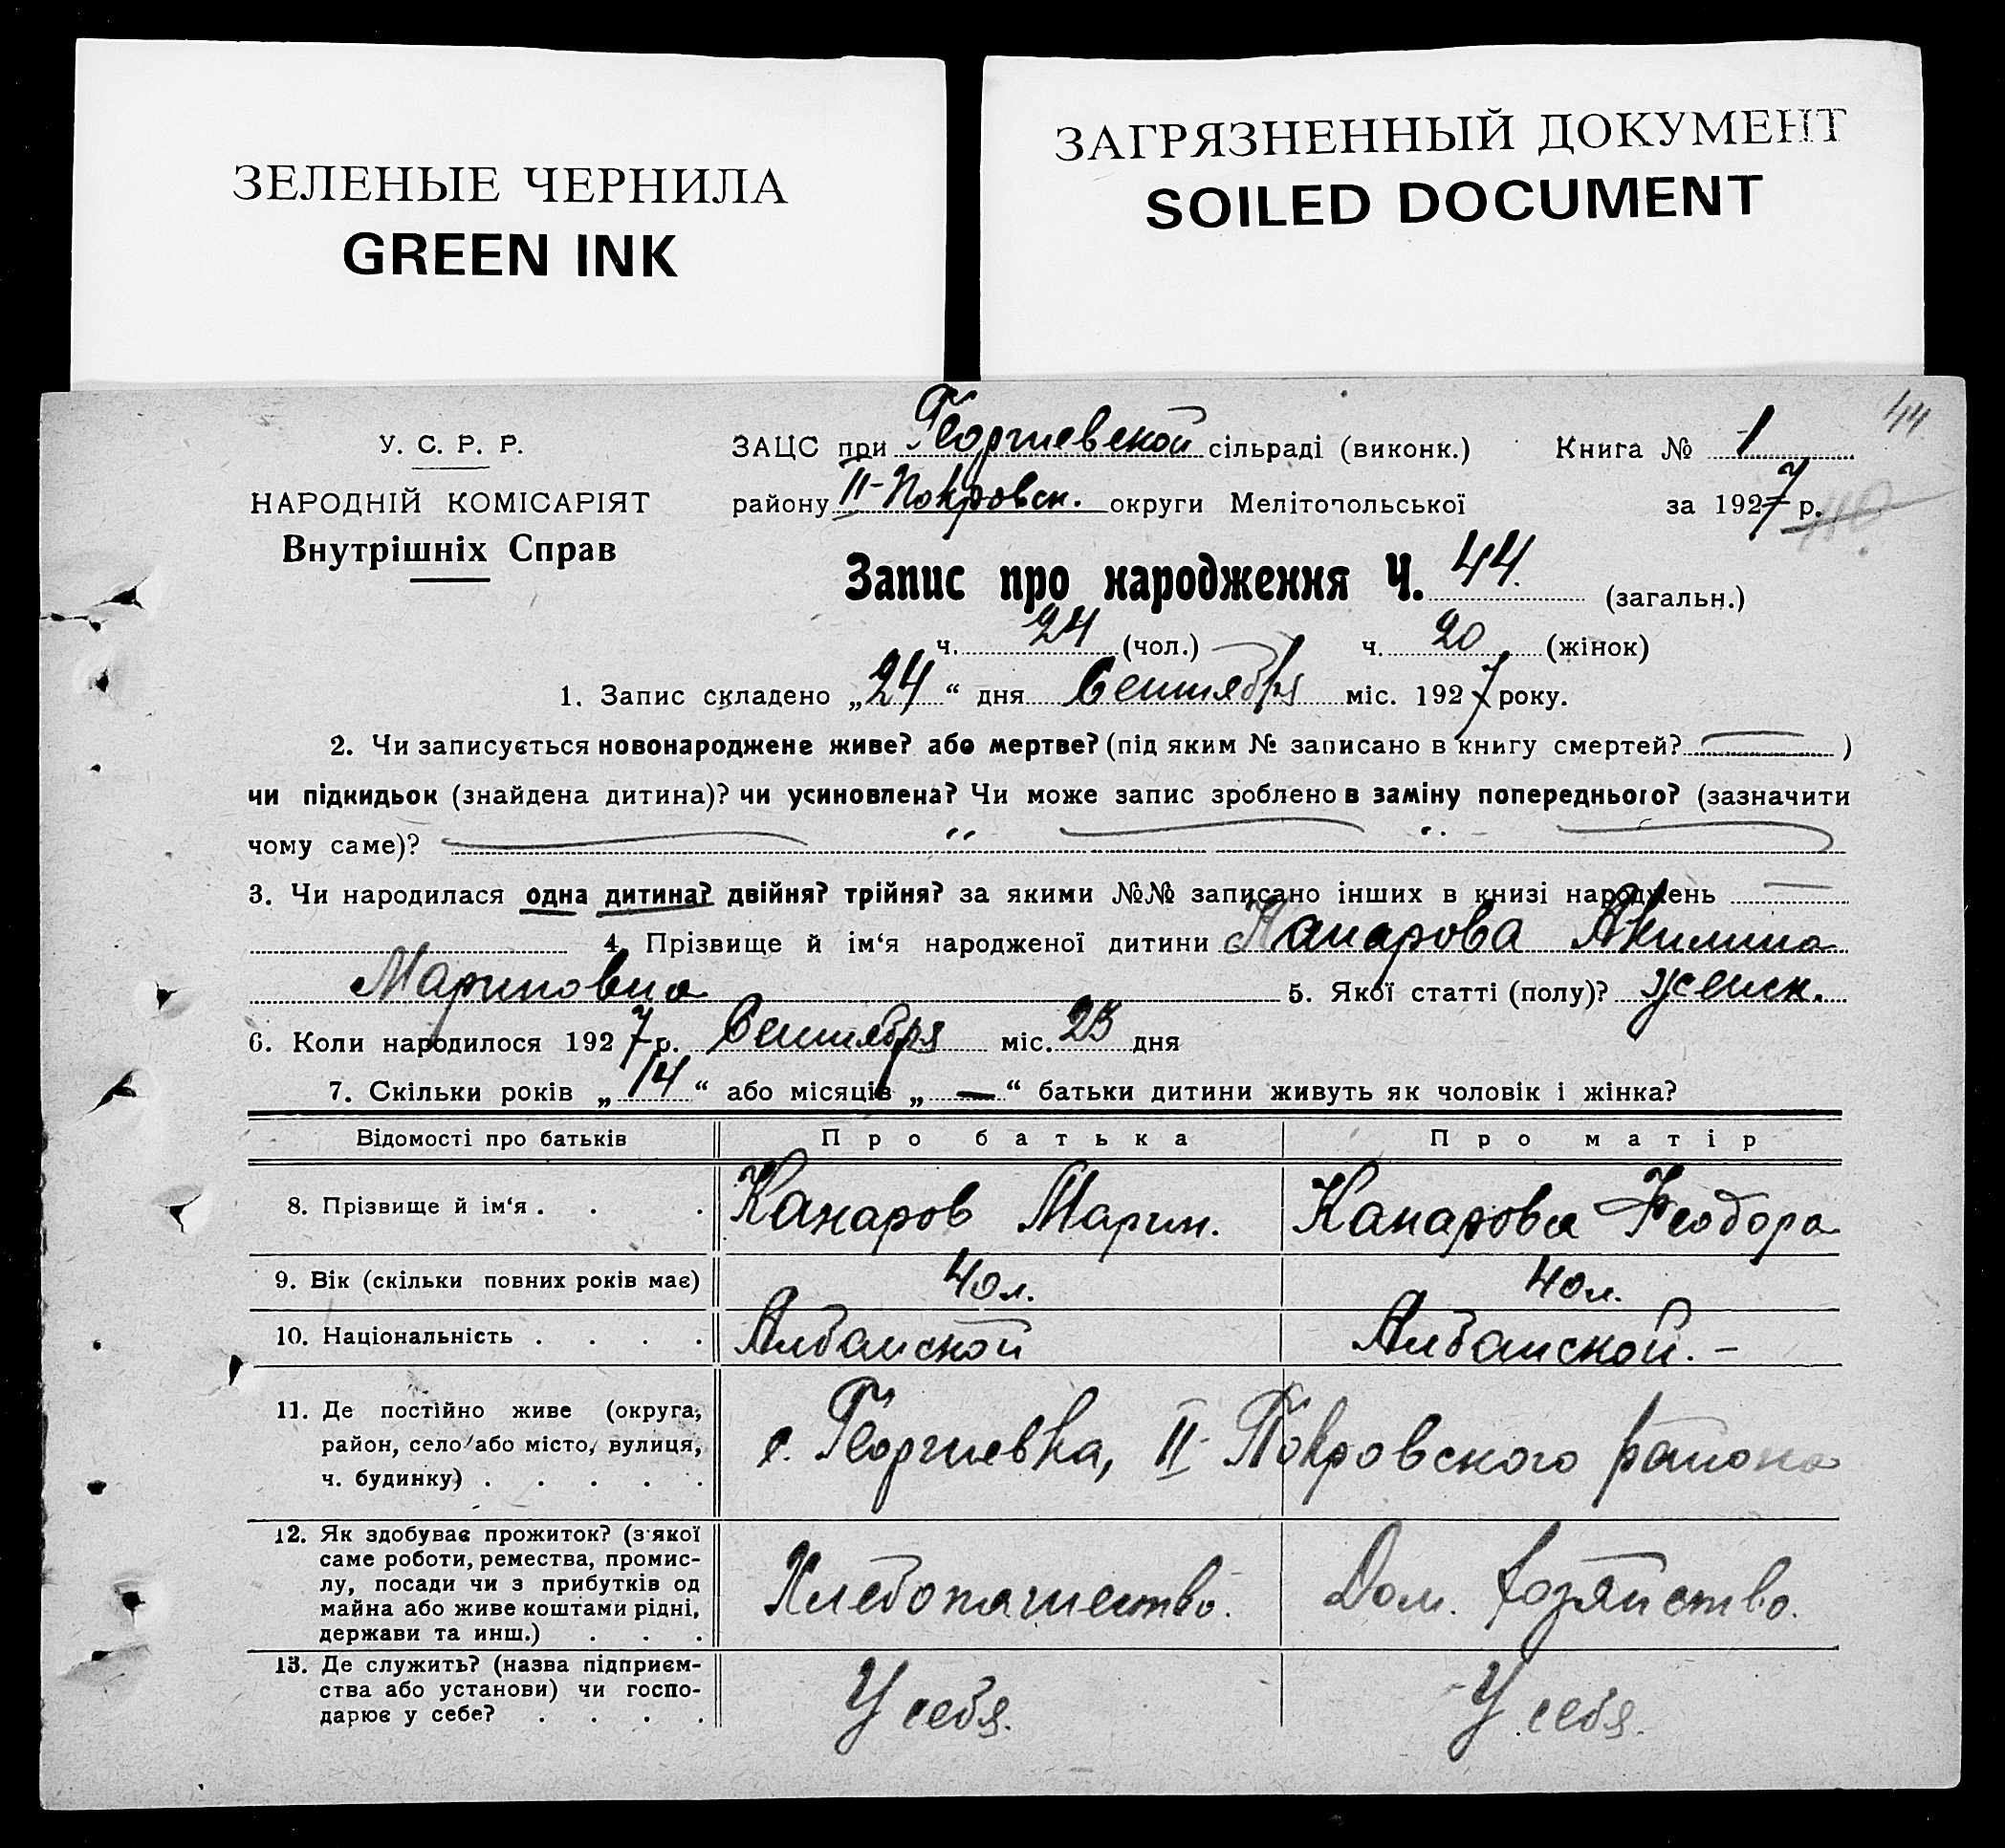 ЗЕЛЕНЫЕ ЧЕРНИЛА
GREEN INK
ЗАГРЯЗНЕННЫЙ ДОКУМЕНТ
SOILED DOCUMENT
44
У. С. Р. Р.
НАРОДНІЙ КОМІСАРІЯТ
Внутрішніх Справ
ЗАЦС при Георгиевской сільраді (виконк.) Книга № 1
району II-Покровск. округи Мелітопольської за 1927 р.
Запис про народження Ч. 44. (загальн.)
ч. 24 (чол.) ч. 20 (жінок)
1. Запис складено „24“ дня Сентября міс. 1927 року.
2. Чи записується новонароджене живе? або мертве? (під яким № записано в книгу смертей? — )
чи підкидьок (знайдена дитина)? чи усиновлена? Чи може запис зроблено в заміну попереднього? (зазначити
чому саме)? — „ — „ —
3. Чи народилася одна дитина? двійня? трійня? за якими №№ записано інших в книзі народжень —
4. Прізвище й ім‘я народженої дитини Канарова Акилина
Мариновна 5. Якої статті (полу)? женск.
6. Коли народилося 1927 р. Сентября міс. 23 дня
7. Скільки років „14“ або місяців „—“ батьки дитини живуть як чоловік і жінка?
Відомості про батьків Про батька Про матір
8. Прізвище й ім‘я . . . Канаров Марин. Канарова Феодора
9. Вік (скільки повних років має) 40 л. 40 л.
10. Національність . . . . Албанской Албанской. –
11. Де постійно живе (округа,
район, село або місто, вулиця,
ч. будинку) . . . . .
с. Георгиевка, II-Покровского района
12. Як здобуває прожиток? (з якої
саме роботи, ремества, промис-
лу, посади чи з прибутків од
майна або живе коштами рідні,
держави та инш.) . . .
Хлебопашество. Дом. хозяйство.
13. Де служить? (назва підприєм-
ства або установи) чи госпо-
дарює у себе? . . . .
У себя. У себя.